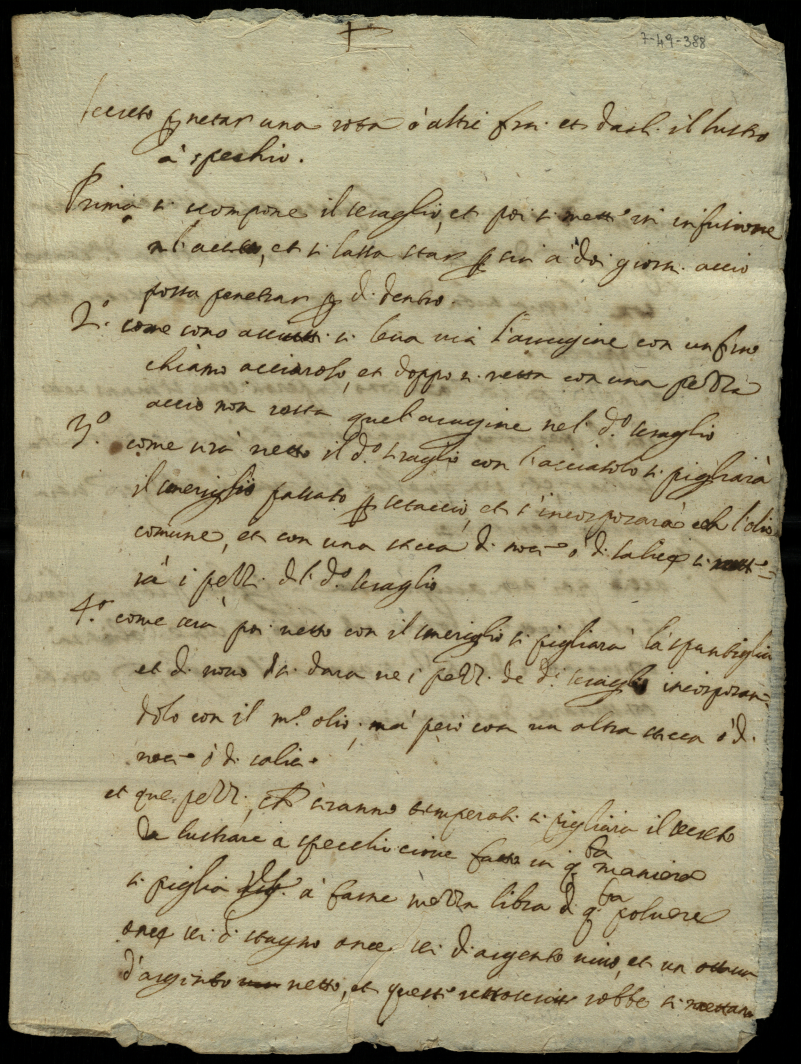 +
7-49-388
secreto p netar una rota ò altri et darli il lustro
à spechio.
Prima si scompone il seraglio, et poi si mette in infusione
nel aceto, et si lassa star p sin à doi giorni acciò
possa penetrar p di dentro.
2.o come sono si leva via l'arugine con un fino
chiamo acciarolo, et doppo si netta con una pezza
acciò non resta quel arugine nel d.o seraglio
3.o come sirà netto il d.o seraglio con l'acciarolo si pigliarà
il smeriglio passato p setaccio, et s'incorporarà con l'olio
comune, et con una stecca di noce ò di salice si
rà i pezzi del d.o seraglio
4.o come sirà poi netto con il smeriglio si pigliarà la
et di novo si dara ne i pezzi de d.o seraglio incorporan=
dolo con il m.o olio, mà però con un altra stecca ò di
noce ò di salice
et que pezzi, che siranno temperati si pigliara il secreto
da lustrare a specchio cioue fatto in q.sta maniera
si piglia à farne mezza libra di q.sta polvere
once sei di stagno once sei d'argento vivo, et un
d'argento netto, et queste robbe si mettano